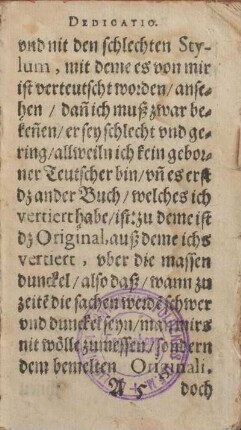 DEDICATIO.
vnd nit den schlechten Sty-
lum, mit deme es von mir
ist verteutscht worden/ anse-
hen / dañ ich muß zwar be-
keñen/ er sey schlecht vnd ge-
ring/ allweiln ich kein gebor-
ner Teutscher bin/ vñ es erst
dz ander Buch/ welches ich
vertiert habe/ ist: zu deme ist
dz Original, auß deme ichs
vertiert, vber die massen
dunckel/ also daß/ wann zu
zeitẽ die sachen werdẽ schwer
vnd dunckel seyn/ man mirs
nit wölle zumessen/ sondern
dem bemelten Originali,
A 5 doch